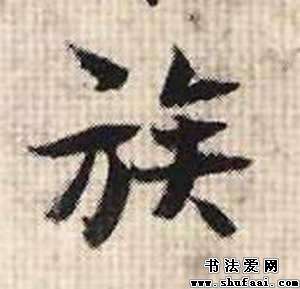 族
书法爱网
www.shufaai.com